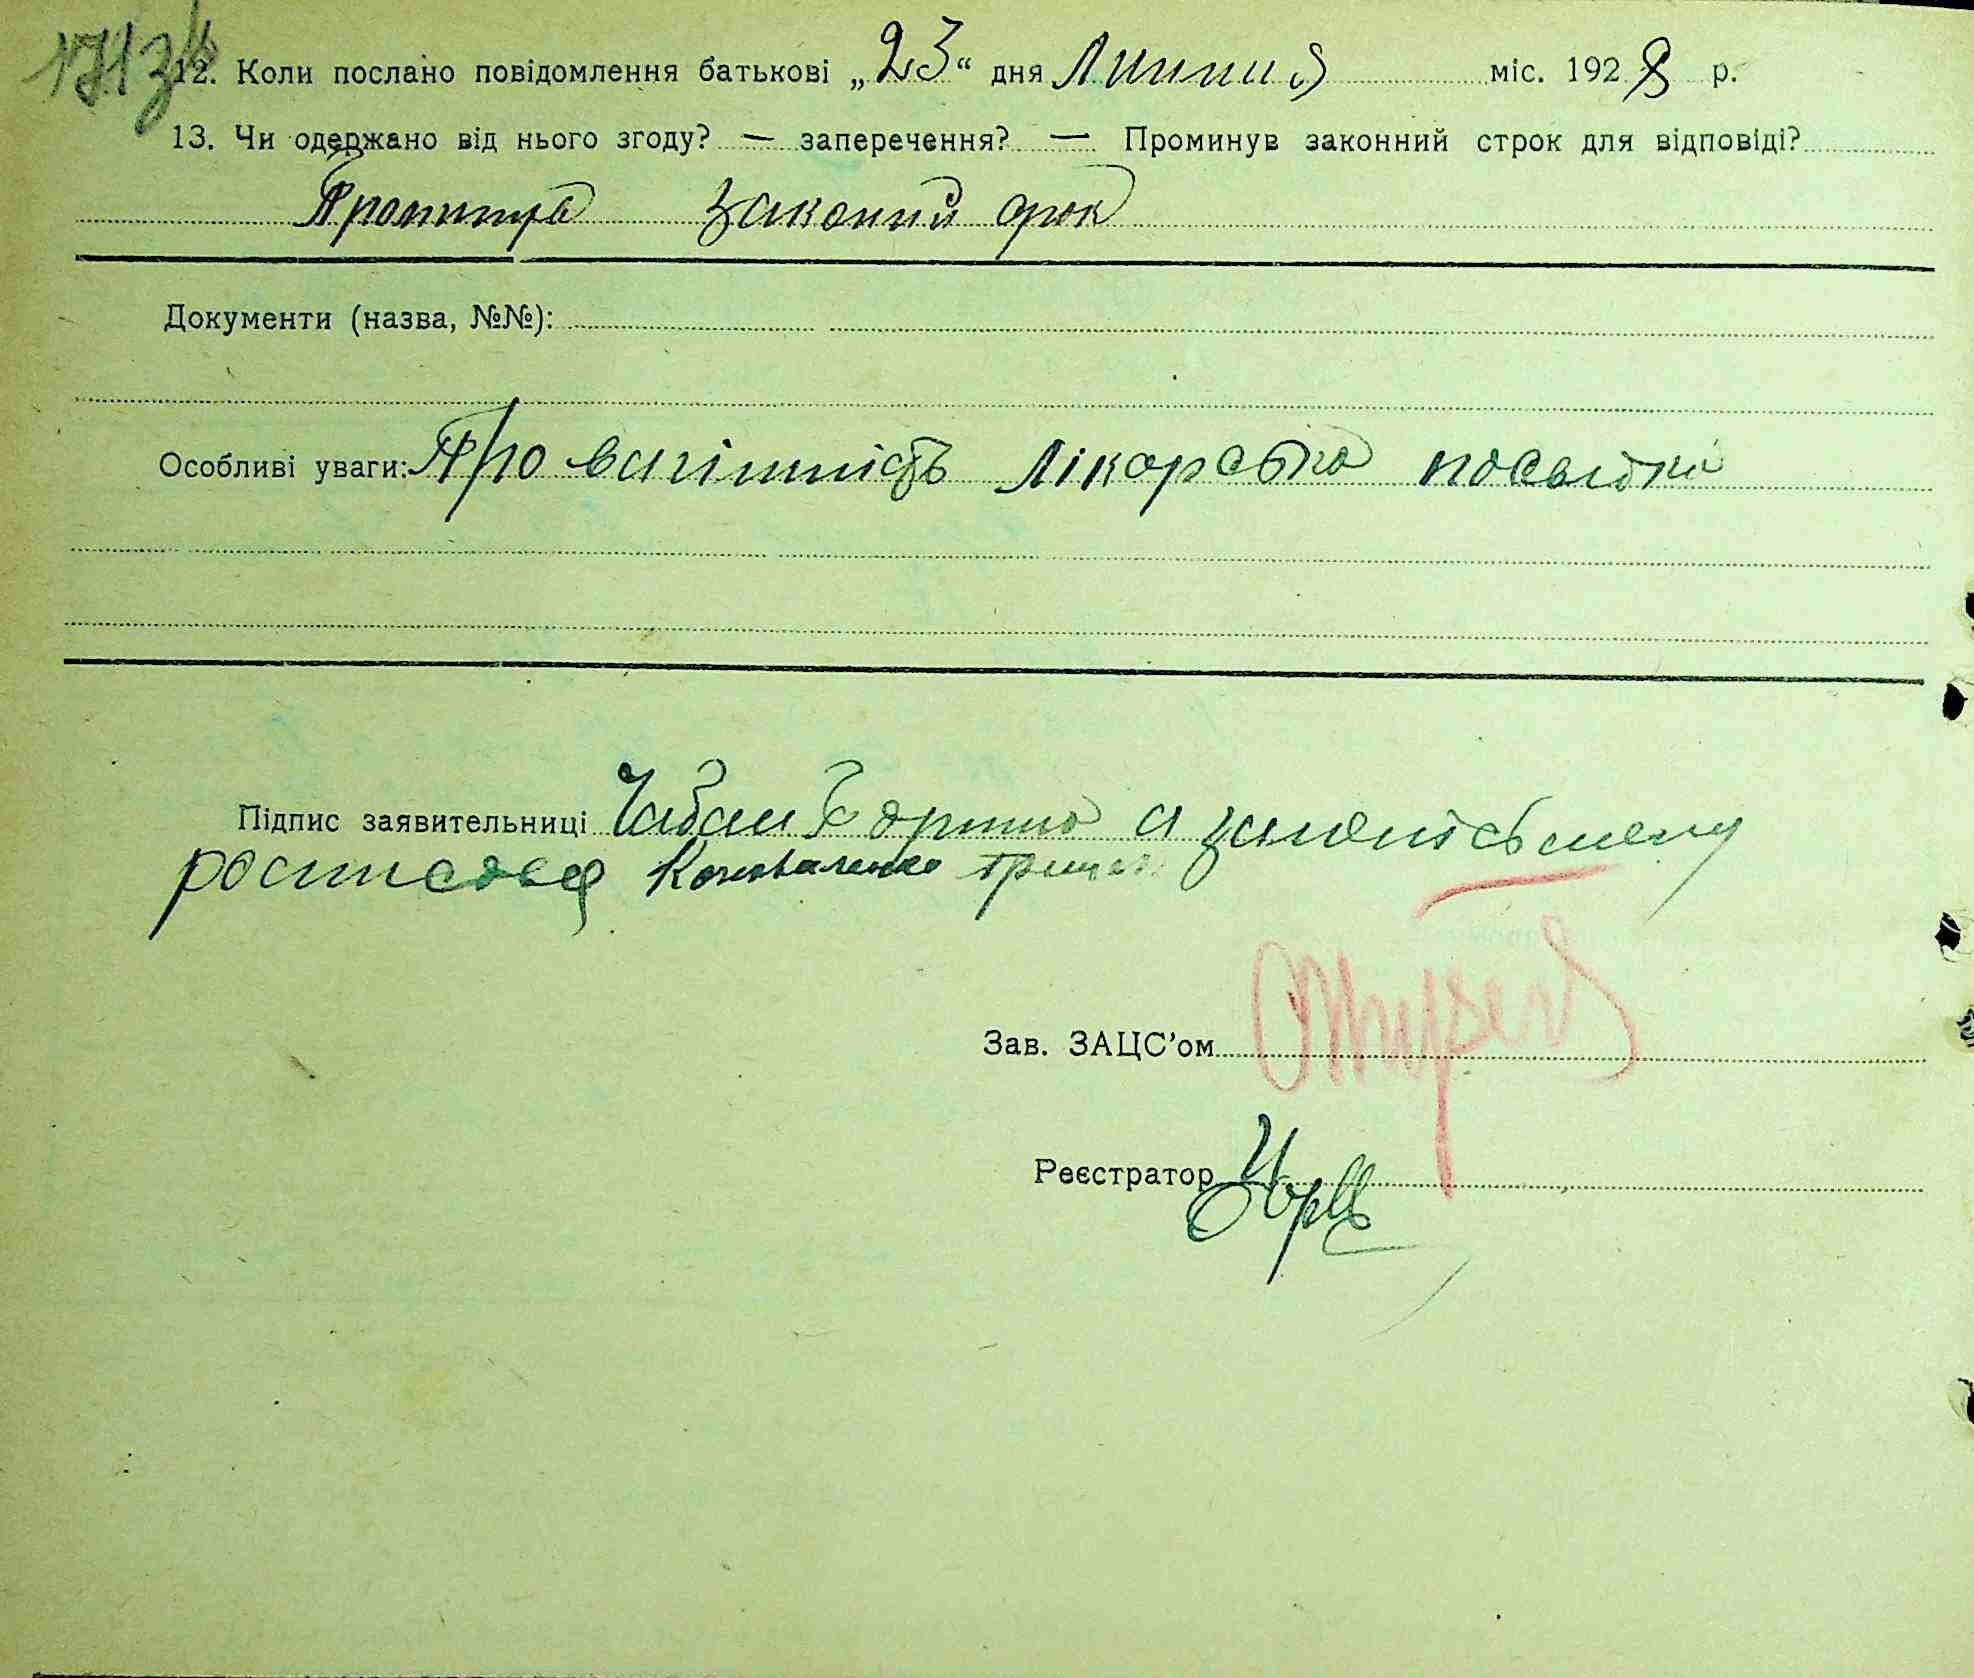 171зв
12. Коли послано повідомлення батькові „23“ дня Липня міс. 1928 р.
13. Чи одержано від нього згоду? — заперечення? — Проминув законний строк для відповіді?
Проминув законий срок
Документи (назва, №№):
Особливі уваги: Про вагітність лікарська посвідка
Підпис заявительниці Чабан Хорина а за неписьмену
росписався Коноваленко
Зав. ЗАЦС’ом
Реєстратор